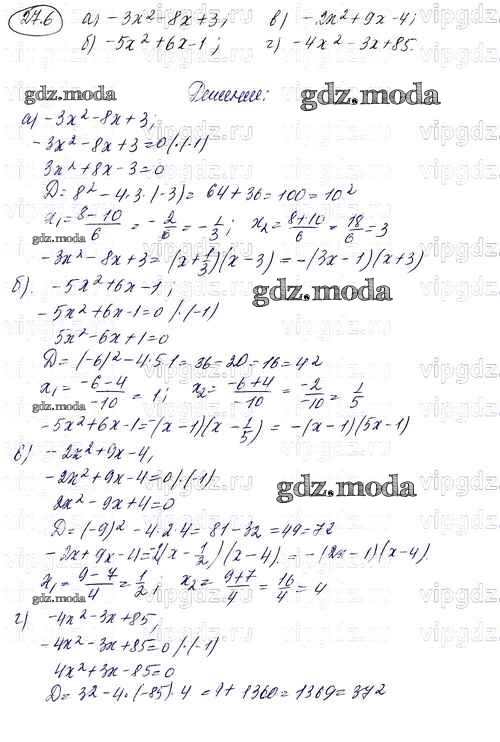 27.6 а) -3x² - 8x + 3; в) -2x² + 9x - 4;
б) -5x² + 6x - 1; г) -4x² - 3x + 85.
Решение:
gdz.moda gdz.moda
а) -3x² - 8x + 3;
-3x² - 8x + 3 = 0 /·(-1)
3x² + 8x - 3 = 0
D = 8² - 4·3·(-3) = 64 + 36 = 100 = 10²
x₁ = (8-10)/6 = -2/6 = -1/3; x₂ = (8+10)/6 = 18/6 = 3
gdz.moda
-3x² - 8x + 3 = (x + 1/3)(x - 3) = -(3x - 1)(x + 3)
б). -5x² + 6x - 1;
gdz.moda
-5x² + 6x - 1 = 0 /·(-1)
5x² - 6x + 1 = 0
D = (-6)² - 4·5·1 = 36 - 20 = 16 = 4²
x₁ = (-6-4)/-10 = 1; x₂ = (-6+4)/-10 = -2/-10 = 1/5
gdz.moda
-5x² + 6x - 1 = -(x - 1)(x - 1/5) = -(x - 1)(5x - 1)
в) -2x² + 9x - 4,
-2x² + 9x - 4 = 0 /·(-1)
gdz.moda
2x² - 9x + 4 = 0
D = (-9)² - 4·2·4 = 81 - 32 = 49 = 7²
-2x + 9x - 4 = (x - 1/2)(x - 4). = -(2x - 1)(x - 4).
x₁ = (9-7)/4 = 1/2; x₂ = (9+7)/4 = 16/4 = 4
gdz.moda
г) -4x² - 3x + 85;
-4x² - 3x + 85 = 0 /·(-1)
4x² + 3x - 85 = 0
D = 3² - 4·(-85)·4 = 9 + 1360 = 1369 = 37²